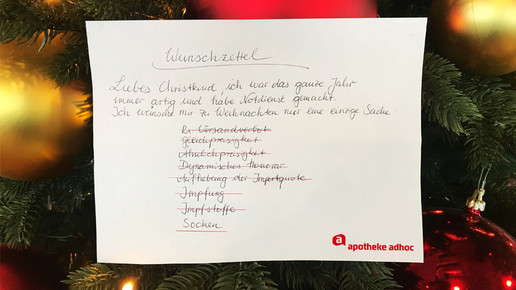 Wunschzettel
Liebes Christkind, ich war das ganze Jahr
immer artig und habe Notdienst gemacht.
Ich wünsche mir zu Weihnachten nur eine einzige Sache
Rx Versandverbot
Gleichpreisigkeit
Dynamisches Honorar
Aufhebung der Importquote
Impfung
Impfstoffe
Socken
a apotheke adhoc